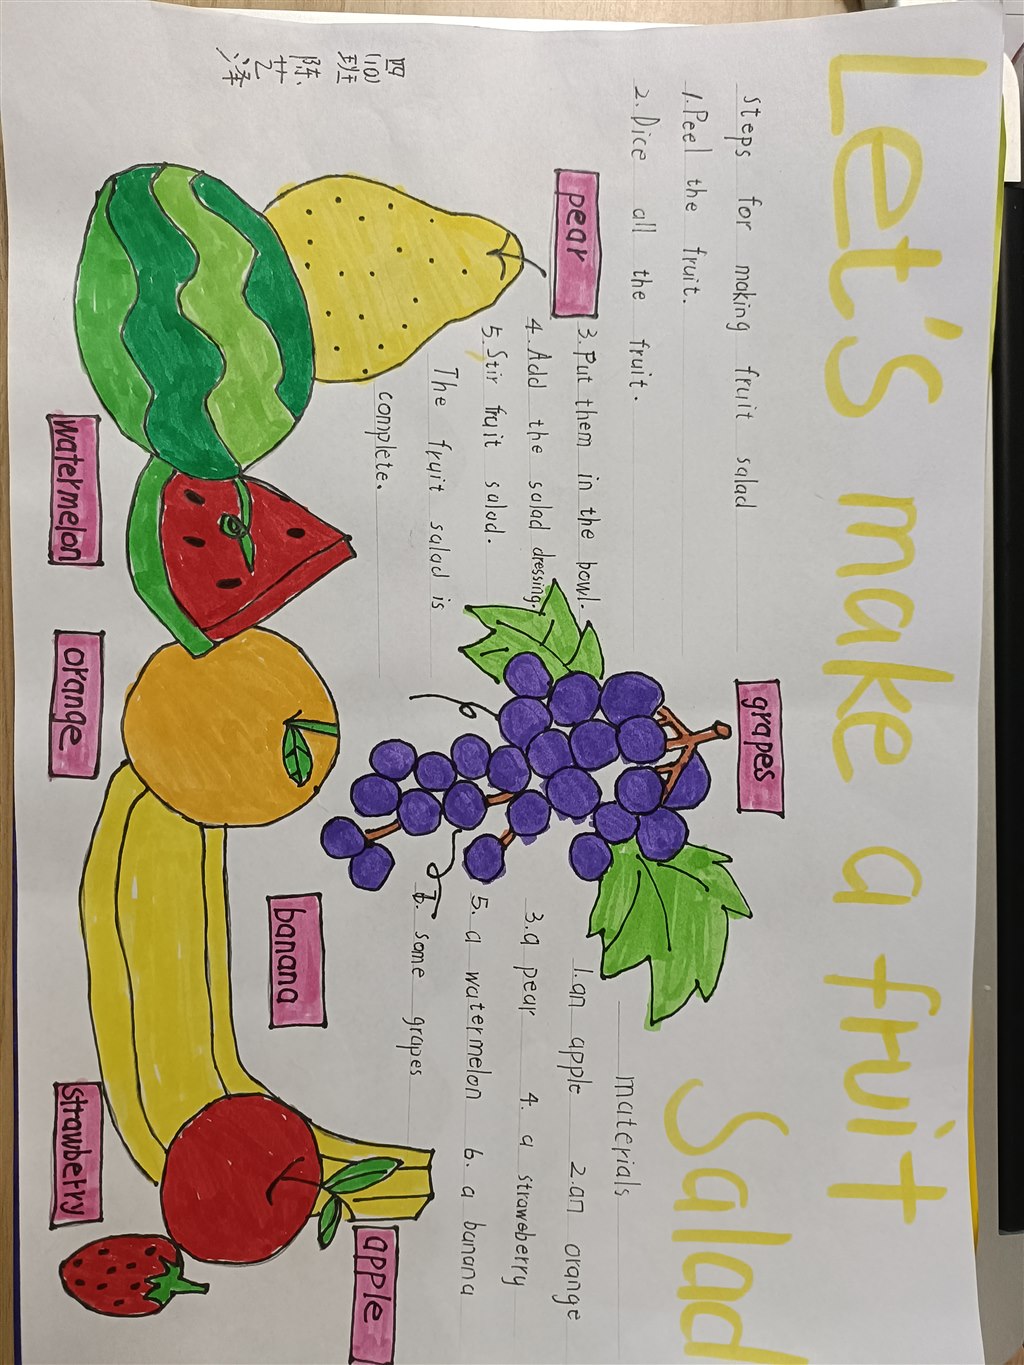 Let's make a fruit
Salad
steps for making fruit salad
1. Peel the fruit.
2. Dice all the fruit.
3. Put them in the bowl.
4. Add the salad dressing.
5. Stir fruit salad.
The fruit salad is
complete.
materials
1.an apple 2.an orange
3.a pear 4. a straweberry
5. a watermelon 6. a banana
7. some grapes
pear
grapes
watermelon
orange
banana
strawberry
apple
四
(10)
班
陈
艺
泽